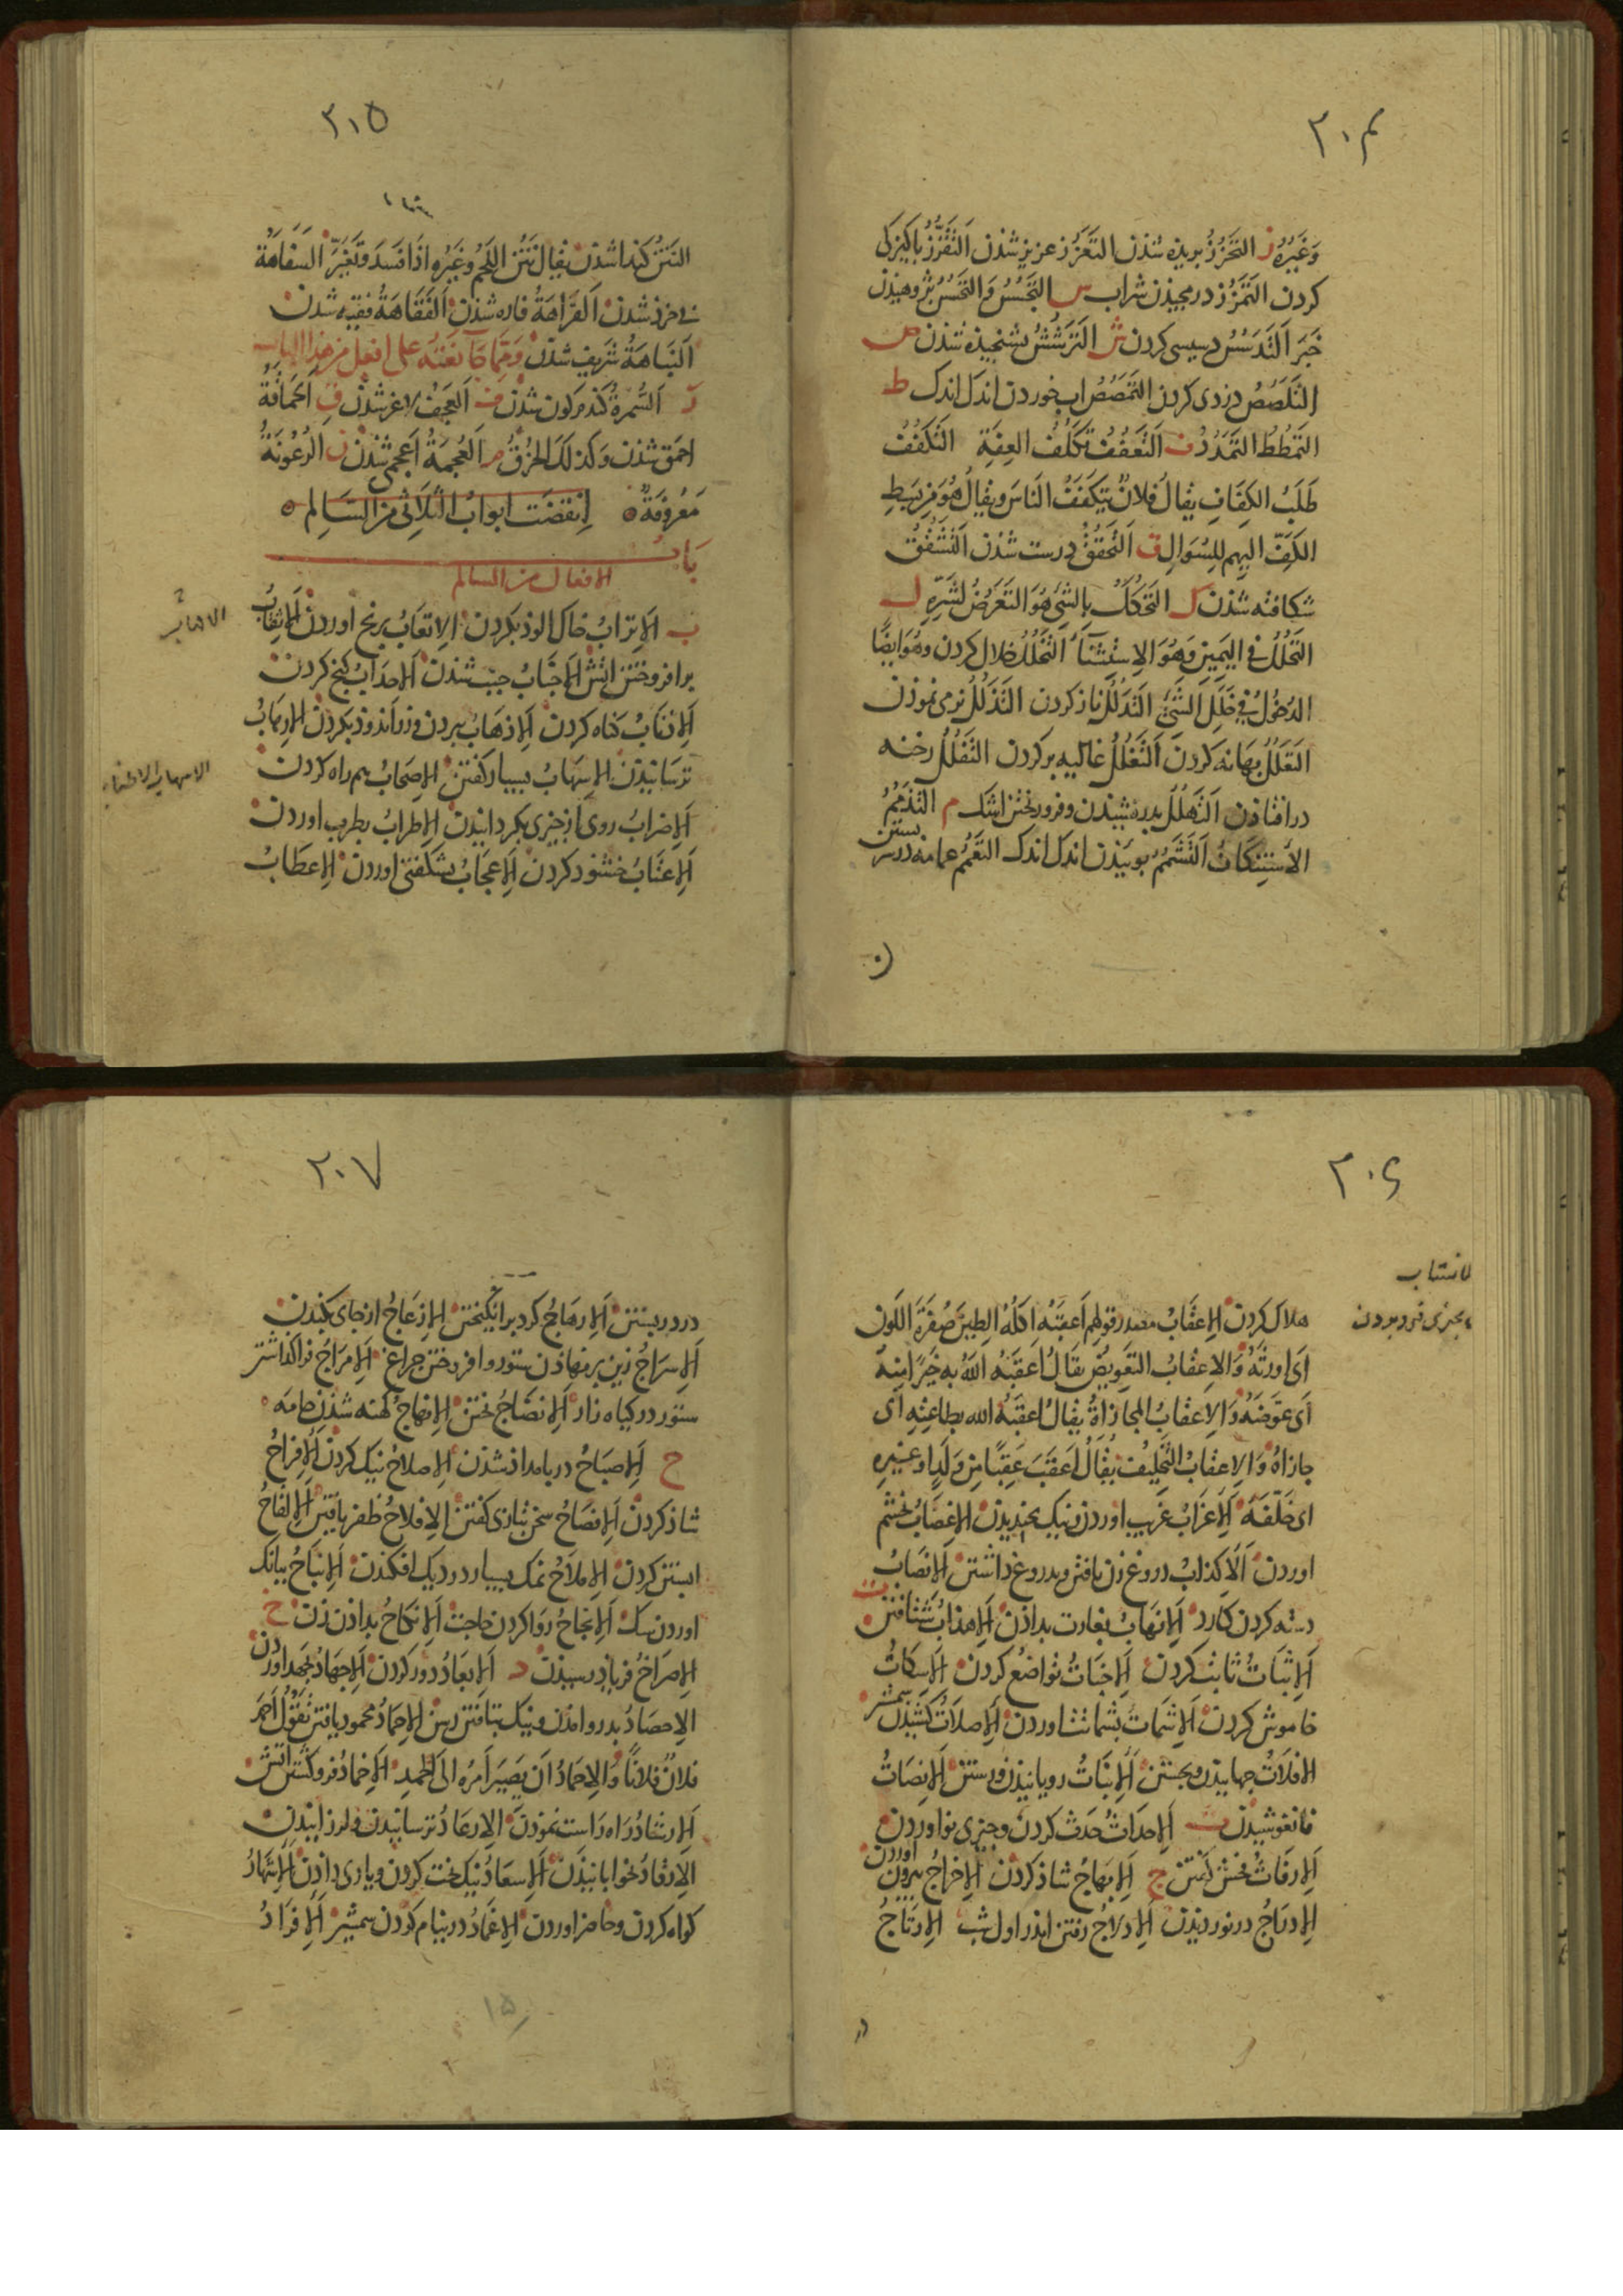 ۲۰۴
وَغَيْرُهُ ز التَحَزُّزُ بريذه شذن التَعَزُّز عزيز شذن التَّقَزُّزُ پاكيزكى
كردن التَمَزُّز درمجيذن شراب س التَجَسُّسُ وَ التَحَسُّسُ پژوهيذن
خَبَر التَدَسُّسُ دسيسى كردن ش التَرَشُّشُ بشنجيذه شذن ص
التَلَصُّصُ دزدى كردن التَمَصُّصُ اب خوردن اندك اندك ط
التَمَطُّطُ التَمَدُّدُ ف التَعَفُّفُ تَكَلُّفُ العِفَّةِ التَكَفُّفُ
طَلَبُ الكِفَافِ يقالُ فلانٌ يَتَكَفَّفُ الناسَ ويقالُ هُوَ مِن بَسْطِ
الكَفِّ اليهِم لِلسُؤَالِ ق التَحَقُّقُ درست شذن التَشَقُّقُ
شكافته شذن ك التَحَكُّكُ بِالشَئِ هُوَ التَعَرُّضُ لِشَرِّهِ ل
التَحَلُّلُ فى اليَمِينِ وَهُوَ الاسْتِثْنَآءُ التَخَلُّلُ خلال كردن وهُوَ ايضًا
الدُخُولُ فى خَلَلِ الشَئِ التَدَلُّلُ ناز كردن التَذَلُّلُ نرمى نموذن
التَعَلُّلُ بهانه كردن التَغَلُّلُ غاليه بركردن التَفَلُّلُ رخنه
درافتاذن التَهَلُّلُ بدرفشيذن وفرو ريختن اشك م التَذَمُّمُ
الاستنكاف التَشَمُّمُ بوييذن اندك اندك التَعَمُّمُ عمامه درسر بستن
۲۰۵
النَتْنُ كندا شذن يقال نَتُنَ اللَحْمُ وغَيْرُه اذَا فَسَدَ وتَغَيَّرَ السَفَاهَةُ
بى خرذ شذن الفَرَاهَةُ فاره شذن الفَقَاهَةُ فقيه شذن
النَبَاهَةُ شريف شذن وَمِمَّا جَآءَ نَعْتُهُ على افعل من هذا الباب
ر السُّمْرَةُ كندم كون شذن ف العَجَفُ لاغر شذن ق الحَمَاقَةُ
احمق شذن وكذلكَ الخُرْقُ م العُجْمَةُ اعجمى شذن ن الرُعُونَةُ
مَعْرُوفَةٌ اِنقضَت ابوابُ الثُلَاثِى من السَالِم
بَابُ
الافعال من السالم
ب الاِترابُ خاك الوذ بكردن الاِتعَابُ برنج اوردن الاِثقَابُ
برافروختن اتش الاِجنَابُ جنب شذن الاِحدَابُ كنج كردن
الاِذنَابُ كناه كردن الاِذهَابُ ببردن وزراندوذ بكردن الاِرهَابُ
ترسانيذن الاِسهَابُ بسيار كفتن الاِصحَابُ همراه كردن
الاِضرَابُ روى از چيزى بكردانيذن الاِطرَابُ بطرب اوردن
الاِعتَابُ خشنود كردن الاِعجَابُ بشكفتى اوردن الاِعطَابُ
۲۰۶
هلاك كردن الاِعقَابُ مصدر قولهم اَعقَبَهُ اَكْلُهُ الطِينَ صُفرَةَ اللَونِ
اى اورثَهُ وَالاِعقابُ التَعوِيضُ يقَالُ اَعقَبَهُ اللهُ بهِ خَيرًا مِنهُ
اَى عَوَّضَهُ وَالاِعقَابُ المجازَاةُ يقالُ اَعقَبَهُ الله بطاعتِهِ اَى
جازاهُ وَالاِعقَابُ التَخلِيفُ يُقَالُ اَعقَبَ عَقِبًا مِن وَلَدٍ او غَيرِه
اى خَلَّفَهُ الاِغرَابُ غريب اوردن ونيك بخنديدن الاِغضَابُ بخشم
اوردن الاِكذابُ دروغ زن يافتن وبدروغ داشتن الاِنصَابُ
دسته كردن كارد الاِنهَابُ بغارت بداذن الاِهذابُ شتافتن ت
الاِثبَاتُ ثابت كردن الاِخبَاتُ تواضع كردن الاِسكَاتُ
خاموش كردن الاِشمَاتُ بشماتت اوردن الاِصلَاتُ كشيذن شمشير
الاِفلَاتُ جهانيذن وبجستن الاِنبَاتُ رويانيذن ورستن الاِنصَاتُ
فانغوشيذن ث الاِحدَاثُ حَدَث كردن وچيزى نو اوردن
الاِرفَاثُ فحش كفتن ج الاِبهَاجُ شاذ كردن الاِخرَاجُ بيرون اوردن
الاِدرَاجُ در نورديذن الاِدلَاجُ رفتن اندر اول شب الاِرتَاجُ
۲۰۷
در دربستن الاِرهَاجُ كرد برانكيختن الاِزعَاجُ از جاى بكندن
الاِسرَاجُ زين برنهاذن ستور وافروختن چراغ الاِمرَاجُ فراكذاشتن
ستور در كياه زار الاِنضَاجُ پختن الاِنهَاجُ كهنه شذن جامه
ح الاِصبَاحُ در بامداذ شذن الاِصلاحُ نيك كردن الاِفرَاحُ
شاذ كردن الاِفصَاحُ سخن بتازى كفتن الاِفلاحُ ظفر يافتن الاِلقَاحُ
ابستن كردن الاِملَاحُ نمك بسيار در ديك افكندن الاِنبَاحُ ببانك
اوردن سك الاِنجَاحُ روا كردن حاجت الاِنكاحُ بداذن زن خ
الاِصرَاخُ فرياذ رسيذن د الاِبعَادُ دور كردن الاِجهَادُ بجهد اوردن
الاِحصَادُ بدرو امذن ونيك بتافتن رسن الاِحمَادُ محمود يافتن تَقُولُ اَحمَدَ
فلانٌ فلانًا وَالاِحمَادُ اَن يَصِيرَ اَمرُه الى الحمدِ الاِخمَادُ فروكشتن اتش
الاِرشَادُ راه راست نموذن الاِرعَادُ ترسانيدن ولرزانيدن
الاِرقَادُ بخوابانيذن الاِسعَادُ نيكبخت كردن ويارى داذن الاِشهَادُ
كواه كردن وحاضر اوردن الاِغمَادُ در نيام كردن شمشير الاِفرَادُ
۱۵